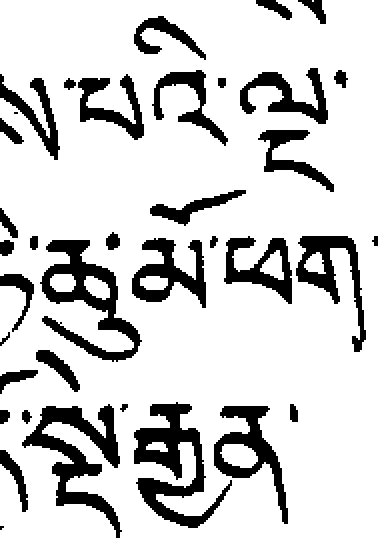 པའི་ལྔ་
ཆུ་མོ་ཕག་
སྡེ་རྒྱན་